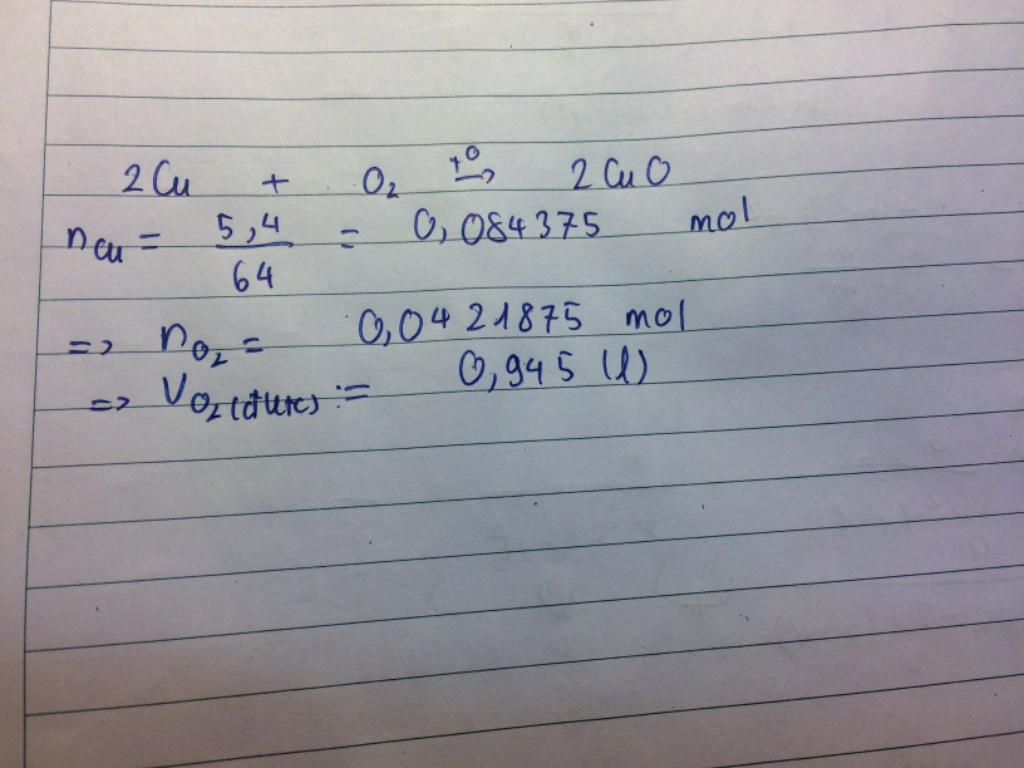 2Cu + O₂ →(t⁰) 2CuO
n_Cu = 5,4/64 = 0,084375 mol
=> n_O₂ = 0,0421875 mol
=> V_O₂(đktc) := 0,945 (l)